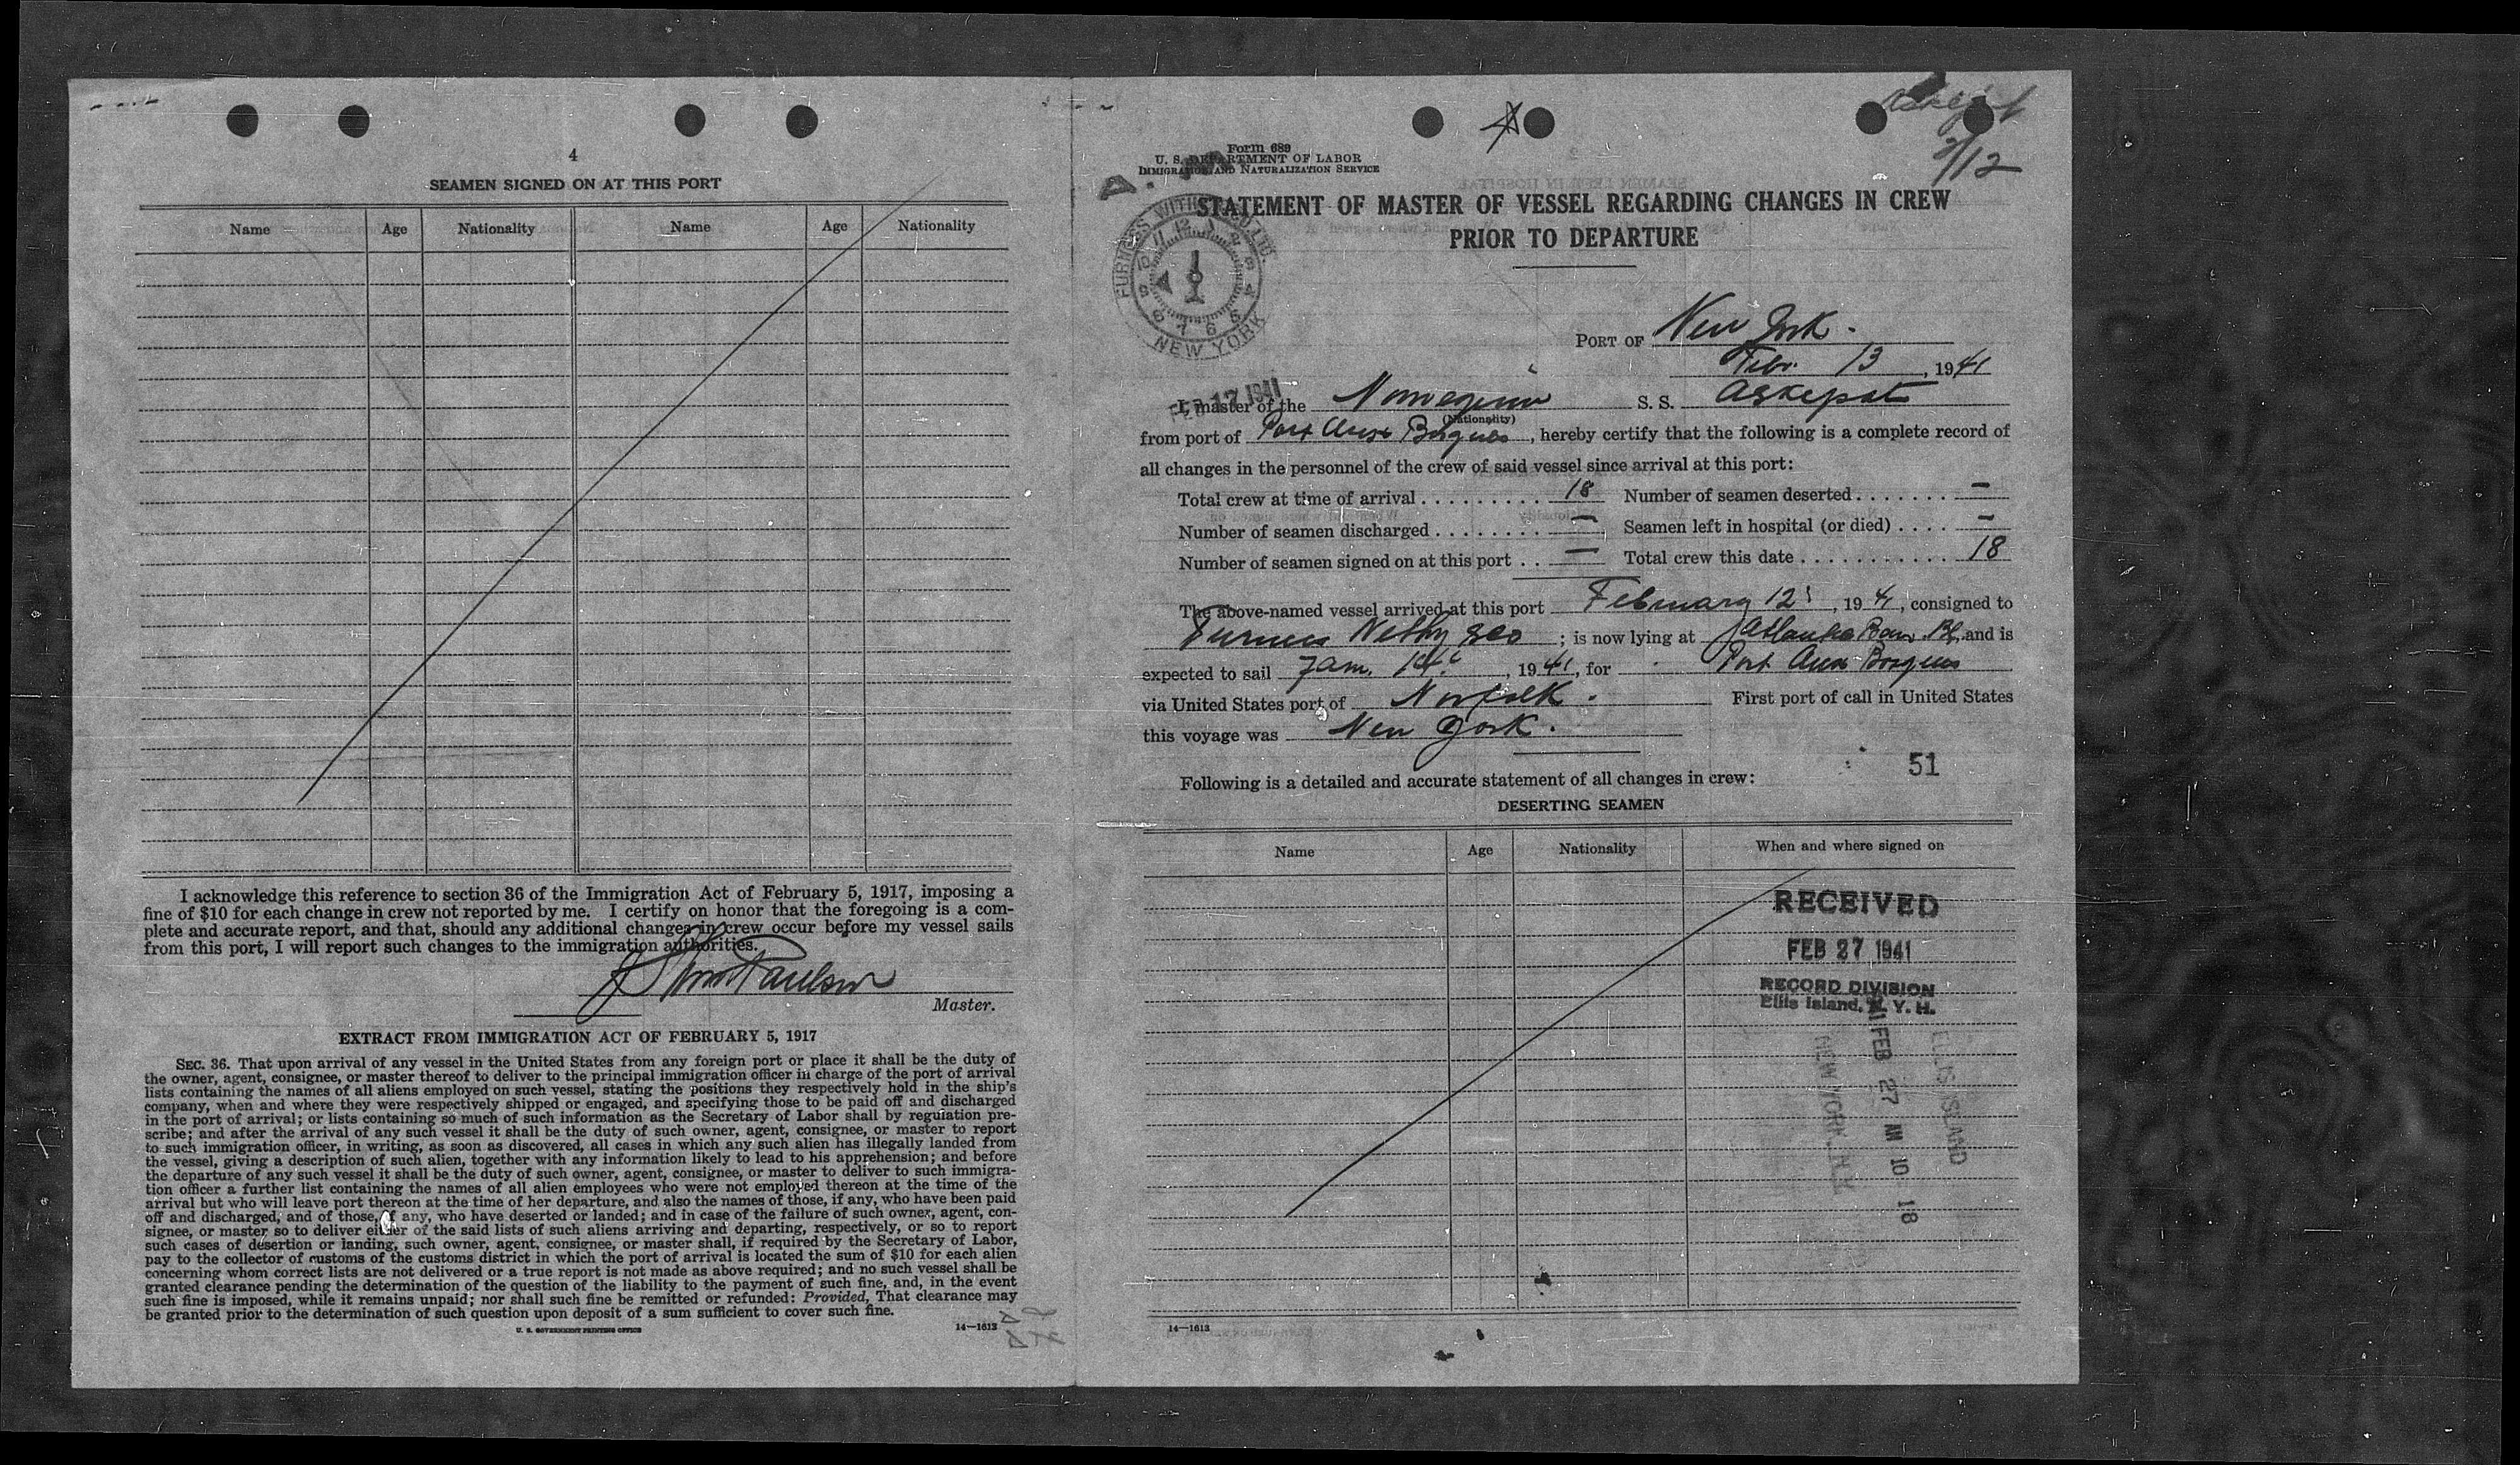 4
SEAMEN SIGNED ON AT THIS PORT
Name Age Nationality Name Age Nationality
I acknowledge this reference to section 36 of the Immigration Act of February 5, 1917, imposing a
fine of $10 for each change in crew not reported by me. I certify on honor that the foregoing is a com-
plete and accurate report, and that, should any additional changes in crew occur before my vessel sails
from this port, I will report such changes to the immigration authorities.
Paulsen
Master.
EXTRACT FROM IMMIGRATION ACT OF FEBRUARY 5, 1917
SEC. 36. That upon arrival of any vessel in the United States from any foreign port or place it shall be the duty of
the owner, agent, consignee, or master thereof to deliver to the principal immigration officer in charge of the port of arrival
lists containing the names of all aliens employed on such vessel, stating the positions they respectively hold in the ship's
company, when and where they were respectively shipped or engaged, and specifying those to be paid off and discharged
in the port of arrival; or lists containing so much of such information as the Secretary of Labor shall by regulation pre-
scribe; and after the arrival of any such vessel it shall be the duty of such owner, agent, consignee, or master to report
to such immigration officer, in writing, as soon as discovered, all cases in which any such alien has illegally landed from
the vessel, giving a description of such alien, together with any information likely to lead to his apprehension; and before
the departure of any such vessel it shall be the duty of such owner, agent, consignee, or master to deliver to such immigra-
tion officer a further list containing the names of all alien employees who were not employed thereon at the time of the
arrival but who will leave port thereon at the time of her departure, and also the names of those, if any, who have been paid
off and discharged, and of those, if any, who have deserted or landed; and in case of the failure of such owner, agent, con-
signee, or master so to deliver either of the said lists of such aliens arriving and departing, respectively, or so to report
such cases of desertion or landing, such owner, agent, consignee, or master shall, if required by the Secretary of Labor,
pay to the collector of customs of the customs district in which the port of arrival is located the sum of $10 for each alien
concerning whom correct lists are not delivered or a true report is not made as above required; and no such vessel shall be
granted clearance pending the determination of the question of the liability to the payment of such fine, and, in the event
such fine is imposed, while it remains unpaid; nor shall such fine be remitted or refunded: Provided, That clearance may
be granted prior to the determination of such question upon deposit of a sum sufficient to cover such fine.
U. S. GOVERNMENT PRINTING OFFICE 14—1613
2/12
Form 689
U. S. DEPARTMENT OF LABOR
IMMIGRATION AND NATURALIZATION SERVICE
STATEMENT OF MASTER OF VESSEL REGARDING CHANGES IN CREW
PRIOR TO DEPARTURE
FURNESS WITHY & CO. LTD.
NEW YORK
FEB 17 1941
PORT OF New York.
Febr. 13, 1941
I, master of the Norwegian S. S. Askepot
(Nationality)
from port of Port Aux Basques, hereby certify that the following is a complete record of
all changes in the personnel of the crew of said vessel since arrival at this port:
Total crew at time of arrival . . . . . . . . . . 18 Number of seamen deserted . . . . . . . —
Number of seamen discharged . . . . . . . . — Seamen left in hospital (or died) . . . . —
Number of seamen signed on at this port . . — Total crew this date . . . . . . . . . . . . 18
The above-named vessel arrived at this port February 12, 1941, consigned to
Furness Withy &Co; is now lying at Atlantic and is
expected to sail 7am. 14, 1941, for Port Aux Basques
via United States port of Norfolk. First port of call in United States
this voyage was New York.
51
Following is a detailed and accurate statement of all changes in crew:
DESERTING SEAMEN
Name Age Nationality When and where signed on
RECEIVED
FEB 27 1941
RECORD DIVISION
Ellis Island, N. Y. H.
FEB 27 AM 10 18
ELLIS ISLAND
NEW YORK
14—1613